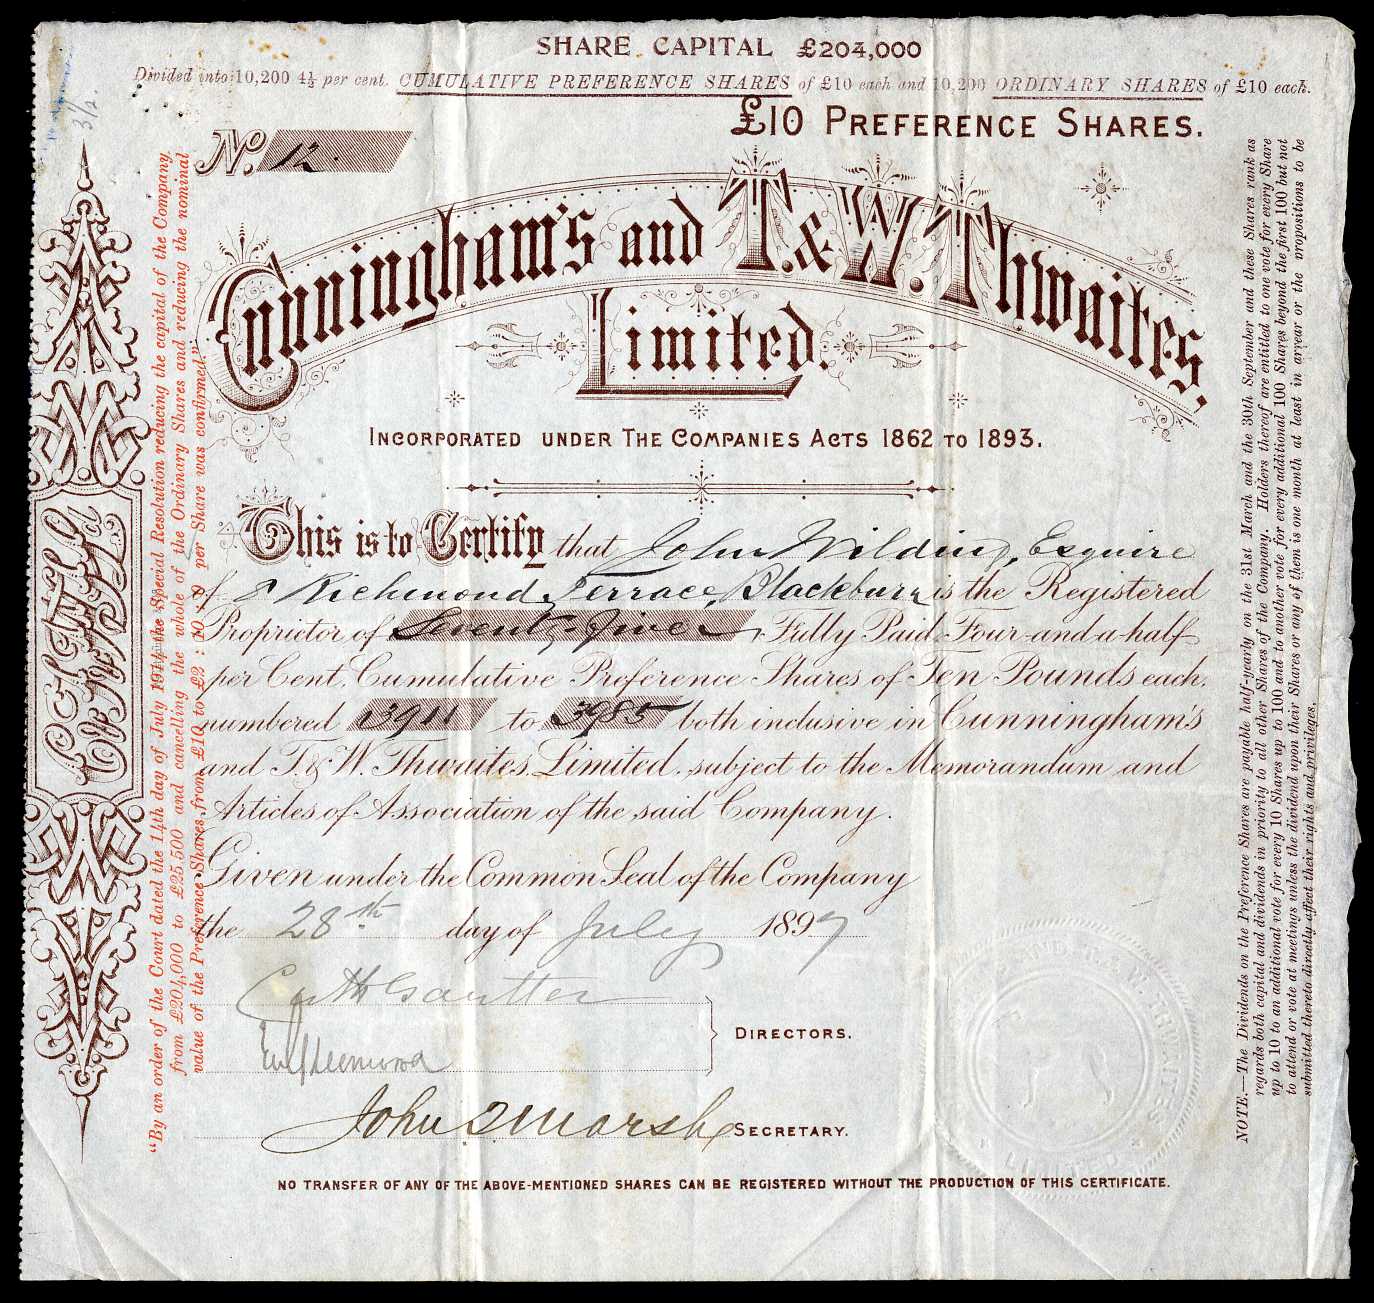 SHARE CAPITAL £204,000
Divided into 10,200 4½ per cent. CUMULATIVE PREFERENCE SHARES of £10 each and 10,200 ORDINARY SHARES of £10 each.
£10 PREFERENCE SHARES.
3/2.
No. 12.
Cunningham's and T. & W. Thwaites,
Limited.
INCORPORATED UNDER THE COMPANIES ACTS 1862 TO 1893.
This is to Certify that John Wilding, Esquire
of 8 Richmond Terrace, Blackburn is the Registered
Proprietor of Seventy-five Fully Paid Four-and-a-half
per Cent. Cumulative Preference Shares of Ten Pounds each,
numbered 3911 to 3985 both inclusive in Cunningham's
and T. & W. Thwaites, Limited, subject to the Memorandum and
Articles of Association of the said Company.
Given under the Common Seal of the Company
the 28th day of July 1897
DIRECTORS.
John Marsh SECRETARY.
NO TRANSFER OF ANY OF THE ABOVE-MENTIONED SHARES CAN BE REGISTERED WITHOUT THE PRODUCTION OF THIS CERTIFICATE.
"By an order of the Court dated the 14th day of July 1914 the Special Resolution reducing the capital of the Company
from £204,000 to £25,500 and cancelling the whole of the Ordinary Shares and reducing the nominal
value of the Preference Shares from £10 to £2 : 10 : 0 per Share was confirmed."
NOTE.—The Dividends on the Preference Shares are payable half-yearly on the 31st March and the 30th September and these Shares rank as
regards both capital and dividends in priority to all other Shares of the Company. Holders thereof are entitled to one vote for every Share
up to 10 to an additional vote for every 10 Shares up to 100 and to another vote for every additional 100 Shares beyond the first 100 but not
to attend or vote at meetings unless the dividend upon their Shares or any of them is one month at least in arrear or the propositions to be
submitted thereto directly affect their rights and privileges.
AND T. & W. THWAITES
LIMITED